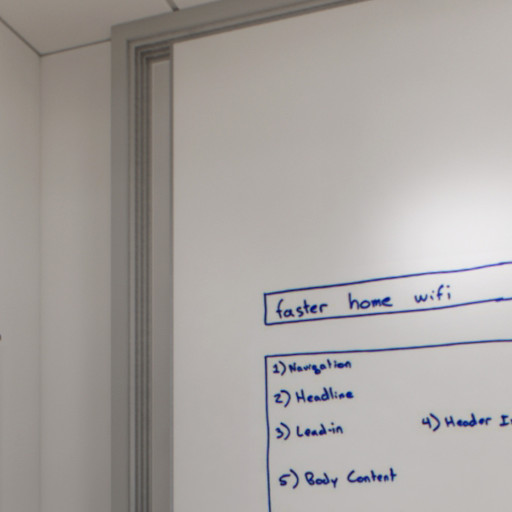 faster home wifi
1) Navigation
2) Headline
3) Lead-in
4) Header
5) Body Content